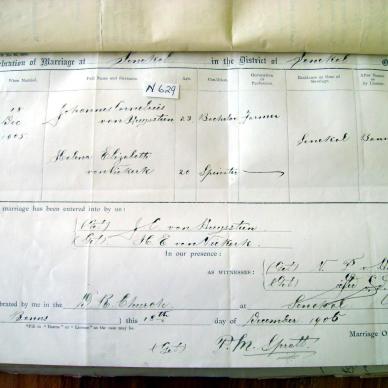 elebration of Marriage at Senekal in the District of Senekal
When Married. Full Name and Surname. Age. Condition. Occupation or Profession. Residence at time of Marriage. After Banns or by License.
N 629
18 Johannes Cornelius
Dec van Huyssteen 23 Bachelor Farmer
1905 Senekal Bann
Helena Elizabeth
van Niekerk 20 Spinster
marriage has been entered into by us:
(Get) J C van Huyssteen
(Get) H E van Niekerk.
In our presence:
AS WITNESSES:
(Get)
(Get)
brated by me in the D R Church at Senekal
Banns this 18th day of December 1905
"Fill in "Banns" or "License" as the case may be.
Marriage O
(Get) M. Spratt